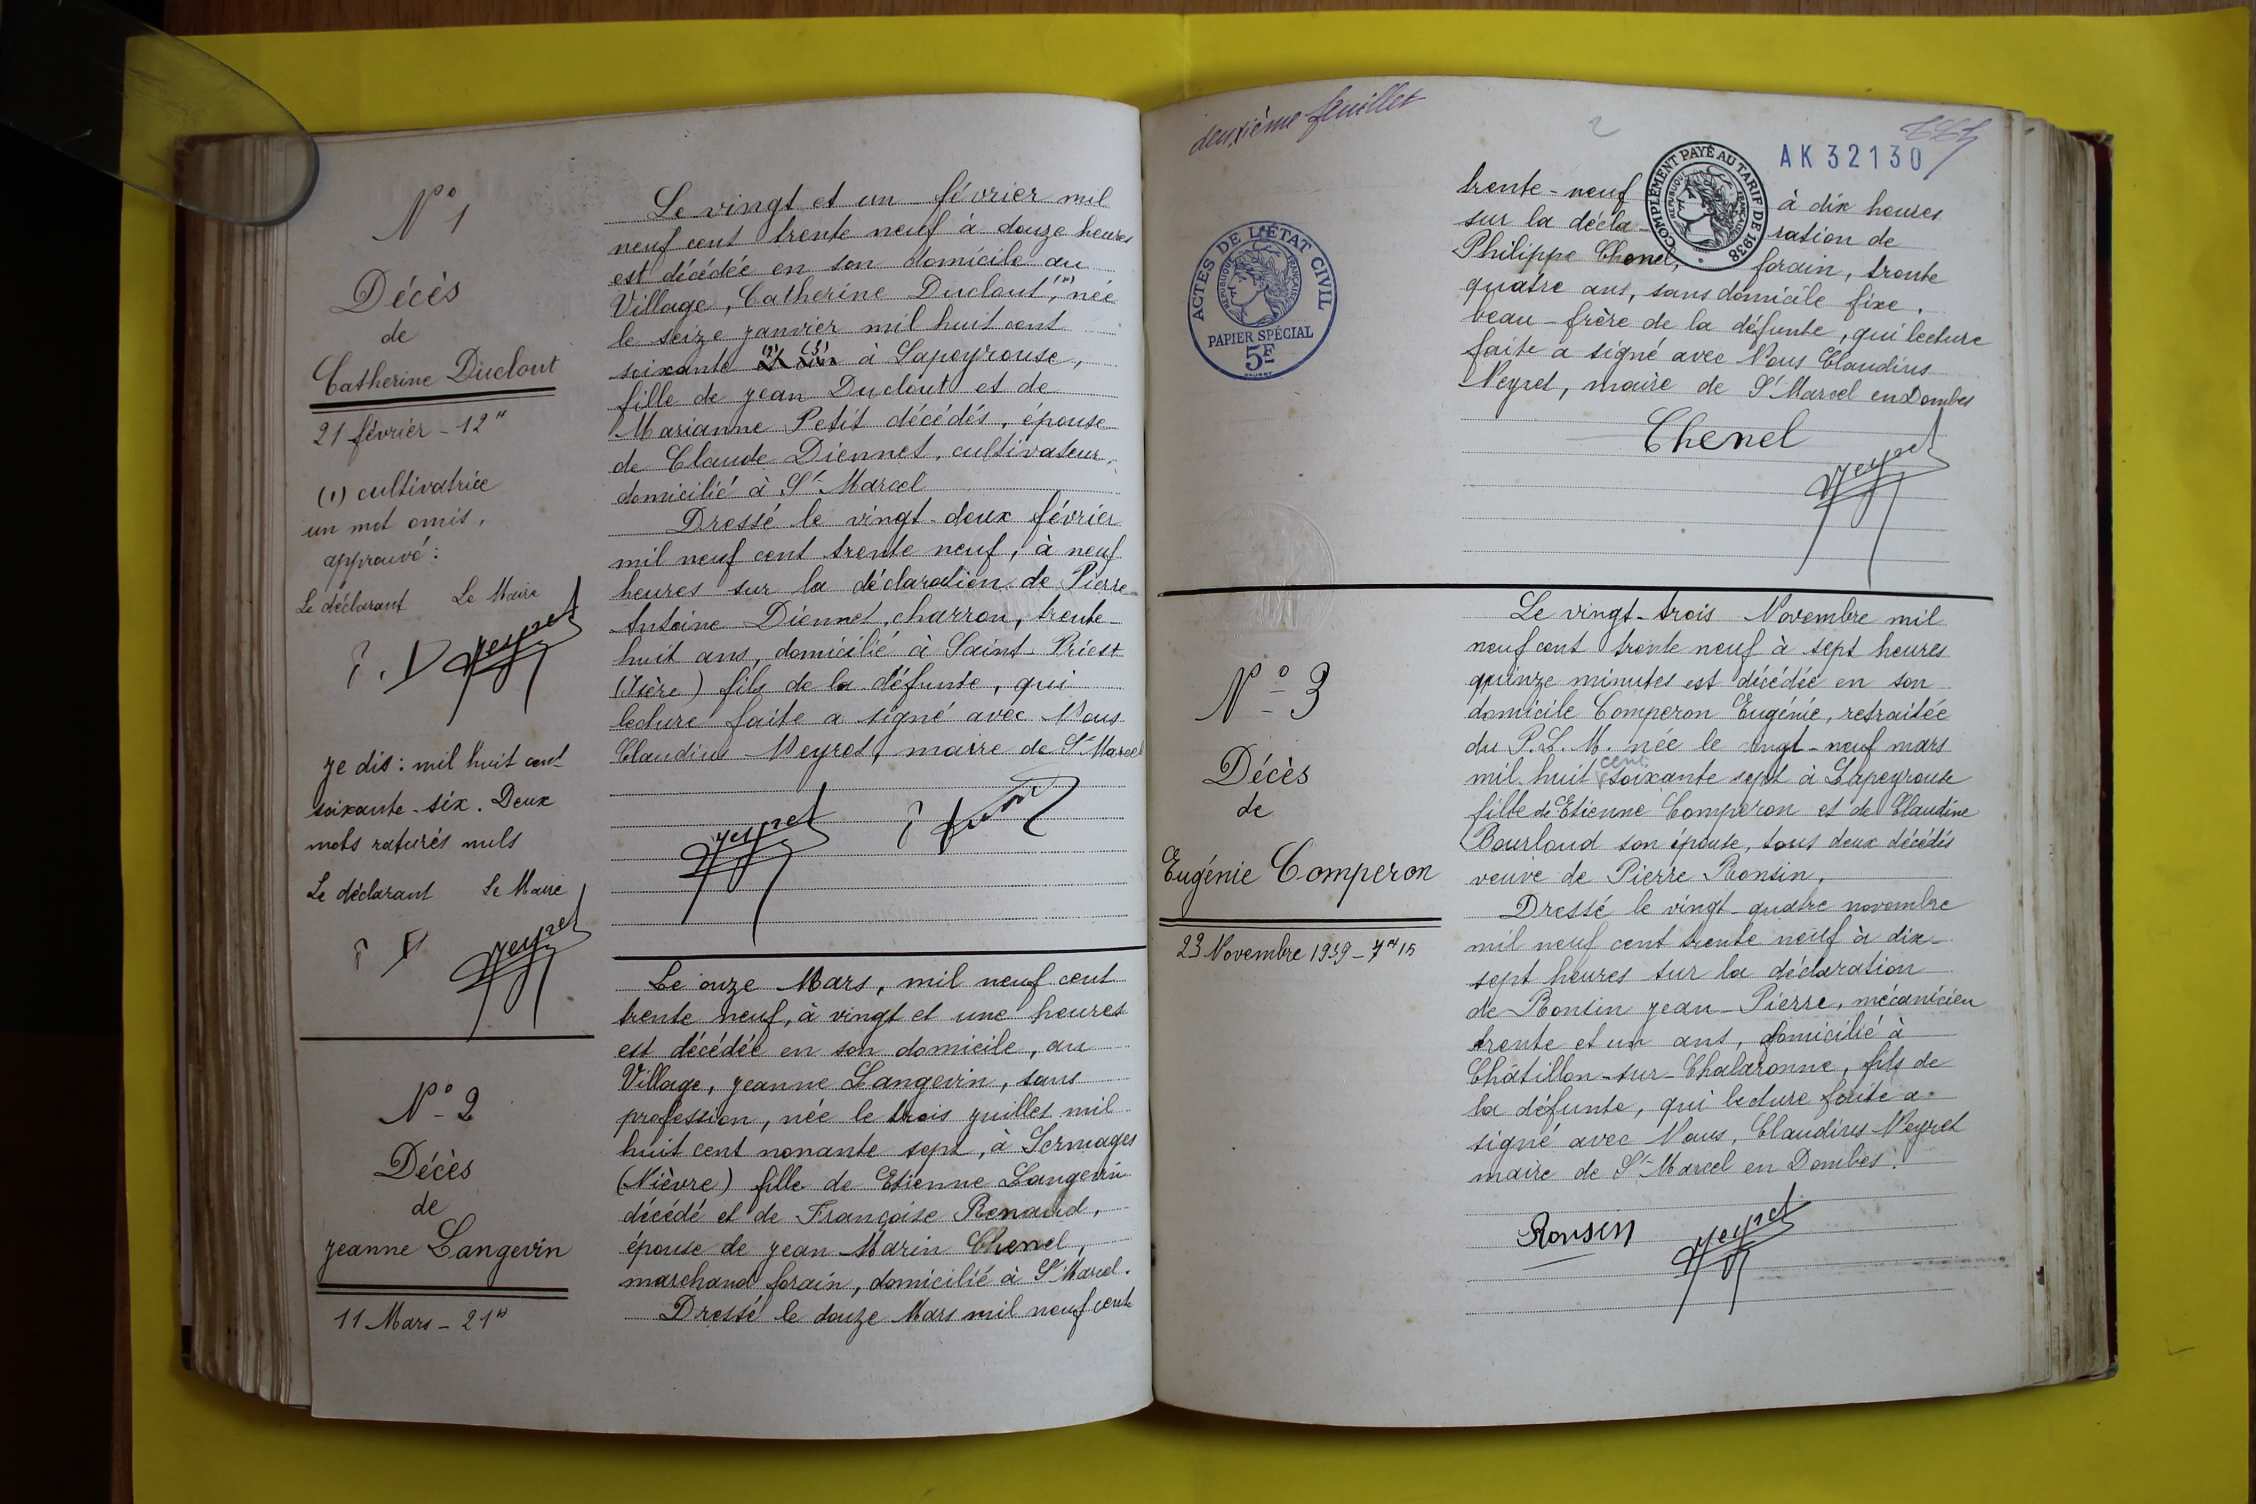 N° 1
Décès
de
Catherine Duclout
21 février - 12 H
(1) cultivatrice
un mot omis,
approuvé :
Le déclarant Le Maire
P. D Neyret
je dis : mil huit cent
soixante - six. Deux
mots raturés nuls
Le déclarant Le Maire
Neyret
Le vingt et un février mil
neuf cent trente neuf à douze heures
est décédée en son domicile au
Village, Catherine Duclout, (1) née
le seize janvier mil huit cent
soixante à Lapeyrouse,
fille de jean Duclout et de
Marianne Petit décédés, épouse
de Claude Diennet, cultivateur,
domicilié à St Marcel
Dressé le vingt-deux février
mil neuf cent trente neuf, à neuf
heures sur la déclaration de Pierre
Antoine Diennet, charron, trente-
huit ans, domicilié à Saint-Priest
(Isère) fils de la défunte, qui
lecture faite a signé avec Nous
Claudius Neyret, maire de St Marcel
Neyret
N° 2
Décès
de
jeanne Langevin
11 Mars - 21 H
Le onze Mars, mil neuf cent
trente neuf, à vingt et une heures
est décédée en son domicile, au
Village, jeanne Langevin, sans
profession, née le trois juillet mil
huit cent nonante sept, à Sermages
(Nièvre) fille de Etienne Langevin
décédé et de Françoise Renaud,
épouse de jean Marin Chenel,
marchand forain, domicilié à St Marcel.
Dressé le douze Mars mil neuf cent
deuxième feuillet
2
AK 32130
COMPLÉMENT PAYÉ AU TARIF DE 1938
RÉPUBLIQUE FRANÇAISE
ACTES DE L'ÉTAT CIVIL
RÉPUBLIQUE FRANÇAISE
PAPIER SPÉCIAL
5F
trente-neuf à dix heures
sur la décla- ration de
Philippe Chenel, forain, trente
quatre ans, sans domicile fixe,
beau-frère de la défunte, qui lecture
faite a signé avec Nous Claudius
Neyret, maire de St Marcel en Dombes
Chenel
Neyret
N° 3
Décès
de
Eugénie Comperon
23 Novembre 1939 - 7 H 15
Le vingt-trois Novembre mil
neuf cent trente neuf à sept heures
quinze minutes est décédée en son
domicile Comperon Eugénie, retraitée
du P.L.M. née le vingt-neuf mars
mil huit cent soixante sept à Lapeyrouse
fille de Etienne Comperon et de Claudine
Bourloud son épouse, tous deux décédés
veuve de Pierre Ronsin.
Dressé le vingt-quatre novembre
mil neuf cent trente neuf à dix-
sept heures sur la déclaration
de Ronsin jean-Pierre, mécanicien
trente et un ans, domicilié à
Châtillon-sur-Chalaronne, fils de
la défunte, qui lecture faite a
signé avec Nous, Claudius Neyret
maire de St Marcel en Dombes.
Ronsin
Neyret